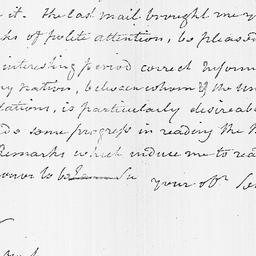 it. The last mail brought me y
ks of polite attention, be pleased
interesting period correct inform
ry nation, between whom & the Un
tations, is particularly desireab
ds some progress in reading the
Remarks which induce me to rea
honor to be
your obt. Se